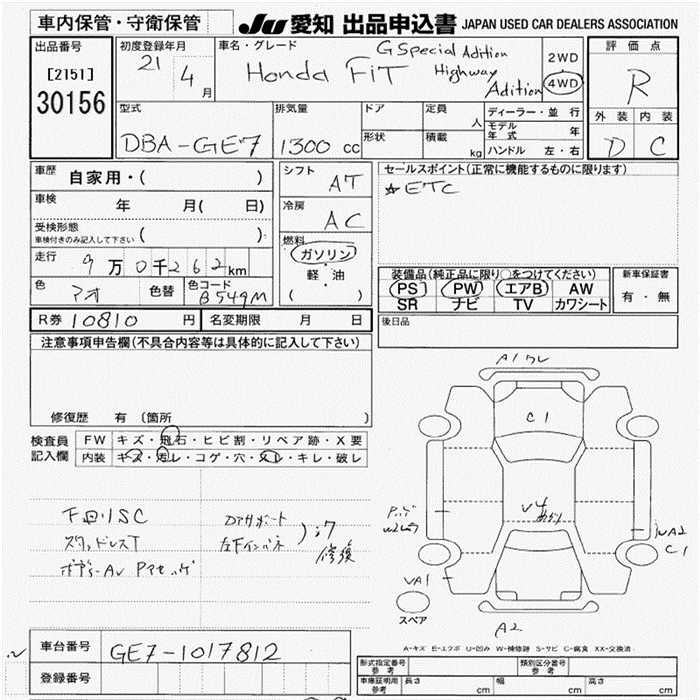 車内保管・守衛保管
JU 愛知 出品申込書 JAPAN USED CAR DEALERS ASSOCIATION
出品番号
[2151]
30156
初度登録年月
21 4 月
車名・グレード
Honda FiT
G Special Adition
Highway
Adition
2WD
4WD
評価点
R
外装 内装
D C
型式
DBA-GE7
排気量
1300 cc
ドア
形状
定員
人
積載
kg
ディーラー・並行
モデル年式 年
ハンドル 左・右
車歴
自家用・( )
車検
年 月( 日)
受検形態
車検付きのみ記入して下さい ( )
走行
9万0千262km
色
アオ
色替
色コード
B549M
シフト
AT
冷房
AC
燃料
ガソリン
軽・油
( )
セールスポイント(正常に機能するものに限ります)
☆ETC
装備品(純正品に限り○をつけてください)
PS PW エアB AW
SR ナビ TV カワシート
新車保証書
有・無
R券 10810 円
名変期限 月 日
後日品
注意事項申告欄(不具合内容等は具体的に記入して下さい)
修復歴 有 (箇所 )
検査員
記入欄
FW キズ・飛石・ヒビ割・リペア跡・X要
内装 キズ・汚レ・コゲ・穴・スレ・キレ・破レ
下回りSC
スタッドレスT
左下インパネ
修復
A1ワレ
C1
VA1
A2
C1
A2
スペア
A-キズ E-エクボ U-凹み W-補修跡 S-サビ C-腐食 XX-交換済
車台番号
GE7-1017812
登録番号
型式指定番号
参考
類別区分番号
参考
車庫証明用
参考
長さ cm
幅 cm
高さ cm